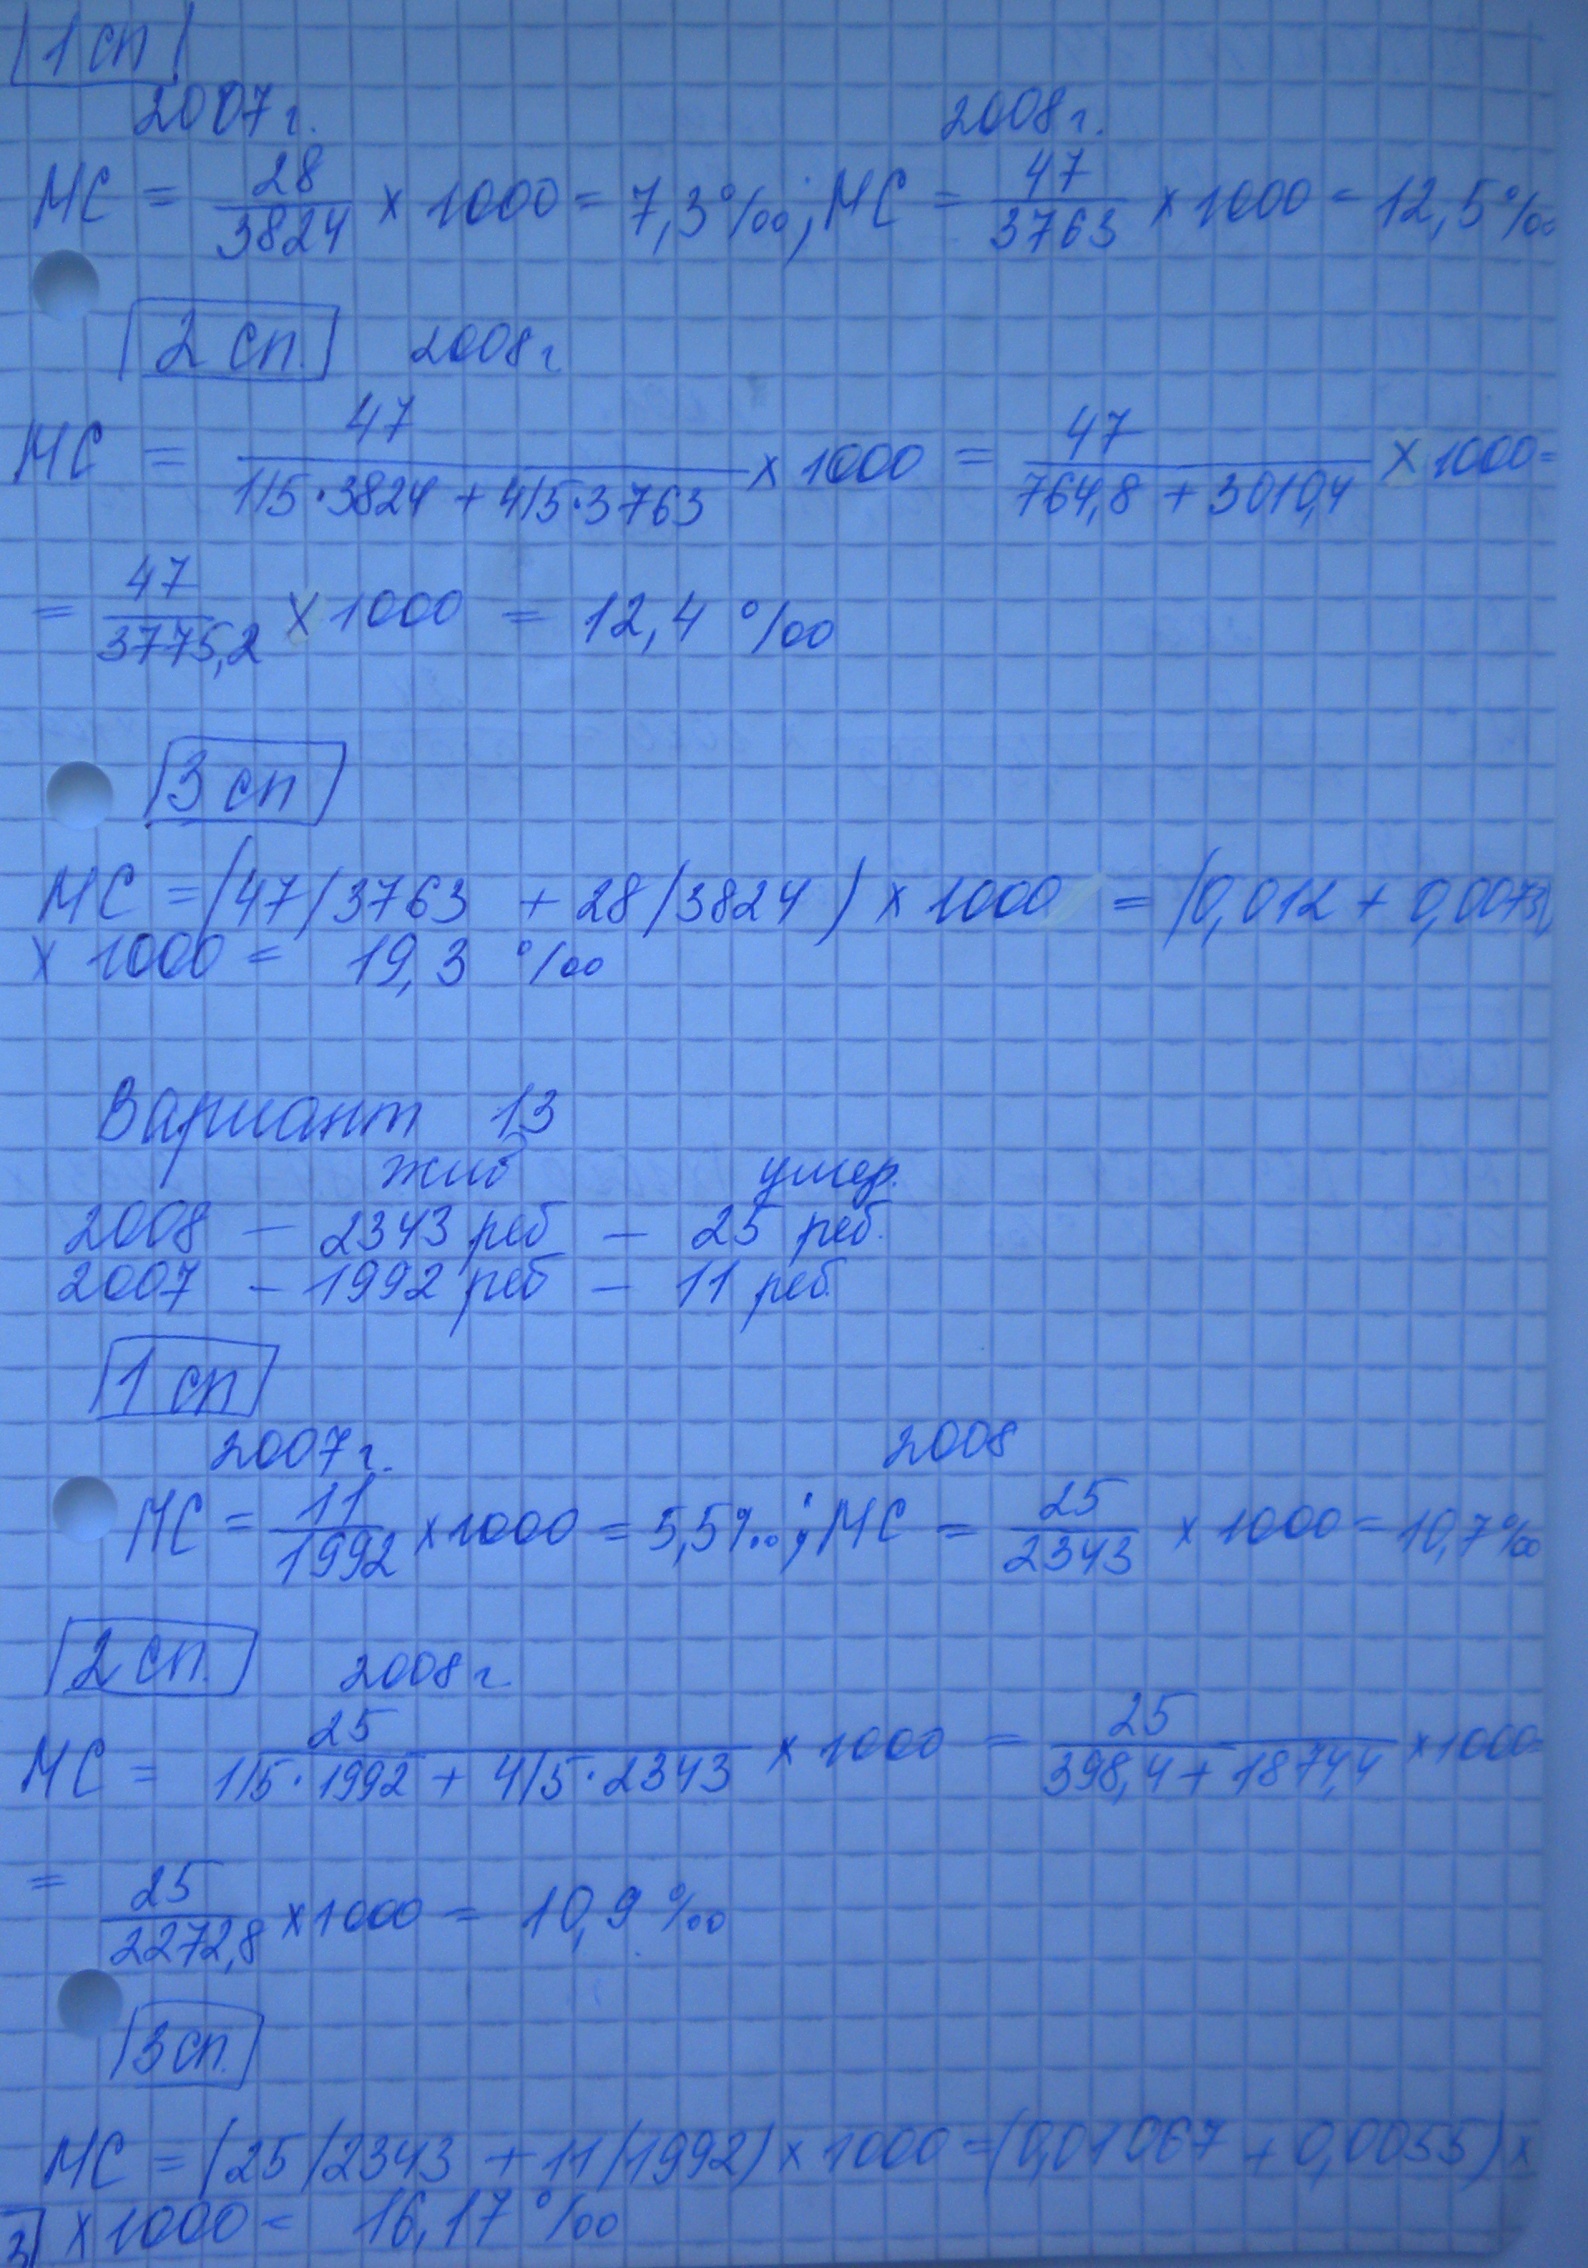 1 сп
2007 г. 2008 г.
МС = 28/3824 × 1000 = 7,3 ‰; МС = 47/3763 × 1000 = 12,5 ‰
2 сп. 2008 г
МС = 47/(1/5·3824 + 4/5·3763) × 1000 = 47/(764,8 + 3010,4) × 1000 =
= 47/3775,2 × 1000 = 12,4 ‰
3 сп
МС = (47/3763 + 28/3824) × 1000 = (0,012 + 0,0073)
× 1000 = 19,3 ‰
Вариант 13
жив умер.
2008 – 2343 реб – 25 реб.
2007 – 1992 реб – 11 реб.
1 сп
2007 г. 2008
МС = 11/1992 × 1000 = 5,5 ‰; МС = 25/2343 × 1000 = 10,7 ‰
2 сп. 2008 г
МС = 25/(1/5·1992 + 4/5·2343) × 1000 = 25/(398,4 + 1874,4) × 1000 =
= 25/2272,8 × 1000 = 10,9 ‰
3 сп.
МС = (25/2343 + 11/1992) × 1000 = (0,01067 + 0,0055) ×
3 × 1000 = 16,17 ‰